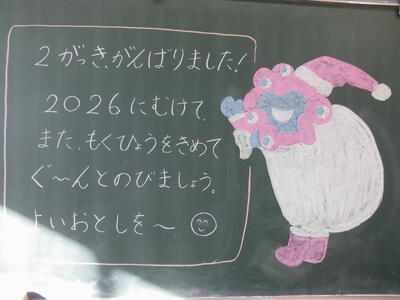 2がっき、がんばりました!
2026にむけて、
また、もくひょうをきめて
ぐ〜んとのびましょう。
よいおとしを〜